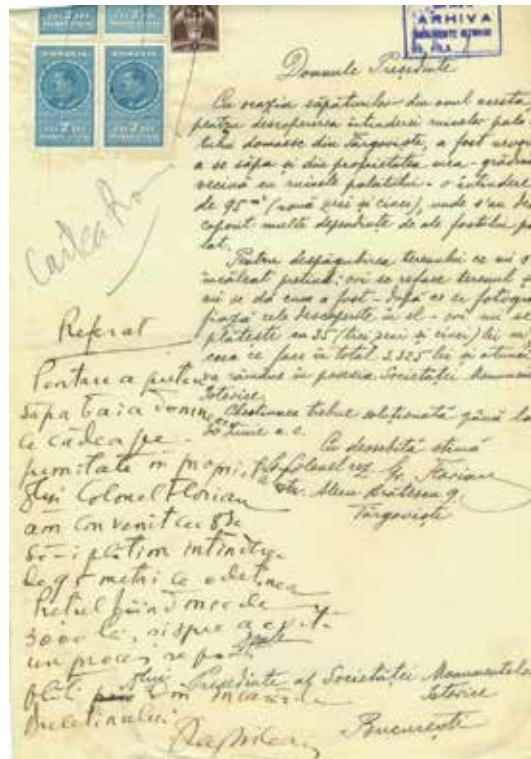 ROMANIA
ARHIVA
MONUMENTE ISTORICE
Domnule Președinte
Cu ocazia săpăturilor din anul acesta
pentru descoperirea întinderei ruinelor pala-
tului domnesc din Târgoviște, a fost
a se săpa și din proprietatea mea - grădina
vecină cu ruinele palatului - o întindere
de 95 m² (nouă zeci și cinci), unde s'au des
coperit multe dependințe de ale fostului pa
lat.
Pentru despăgubirea terenului ce mi s'
încălcat pretind: ori se reface terenul și
mi se dă cum a fost - după ce se fotogra
fiază cele descoperite în el - ori mi se
plătește cu 35 (trei zeci și cinci) lei
ceea ce face în total 3.325 lei și atunci
va rămâne în posesia Societăței Monument
Istorice.
Chestiunea trebue soluționată până la
30 Iunie a.c.
Cu deosebită stimă
Lt. Colonel rez. Gr. Florian
Str. Alecu Brătescu 9.
Târgoviște
Cartea
Referat
Pentru a putea
săpa baia domnea
ce cădea pe
jumătate în propriet
Dlui Colonel Florian
am convenit cu Dsa
să-i plătim
metri ce
Prețul fiind
3000 lei, și spre a evita
un proces
plăti
Buletinului
Dlui Președinte al Societăței Monumentelor
Istorice
București